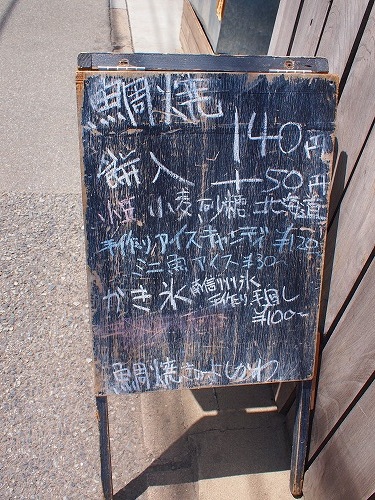 鯛焼 140円
餅入 +50円
小豆 小麦 砂糖 北海道
手作りアイスキャンディ ¥120
ミニ雨アイス ¥30
かき氷 手作り 手回し
¥100~
鯛焼きよしかわ